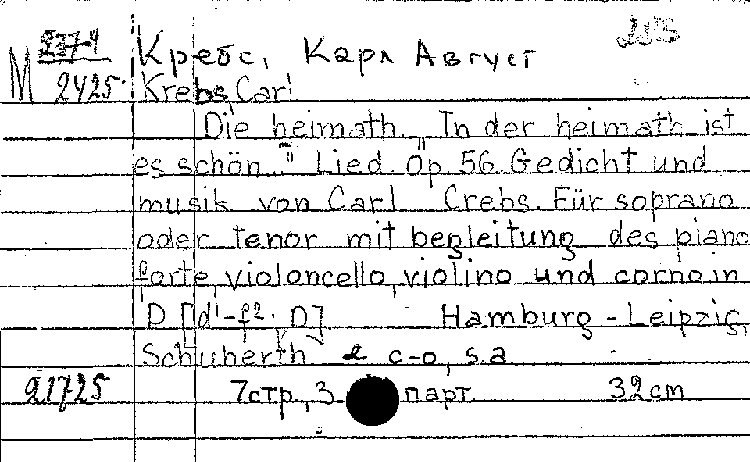 M 2425
Кребс, Карл Август
Krebs, Carl
Die heimath. "In der heimath ist
es schön..." Lied. Op. 56. Gedicht und
musik von Carl Crebs. Für soprano
oder tenor mit begleitung des piano
forte, violoncello, violino und corno in
D [d¹-f². D] Hamburg-Leipzig,
Schuberth & c-o, s.a
21725 7стр., 3 парт. 32cm